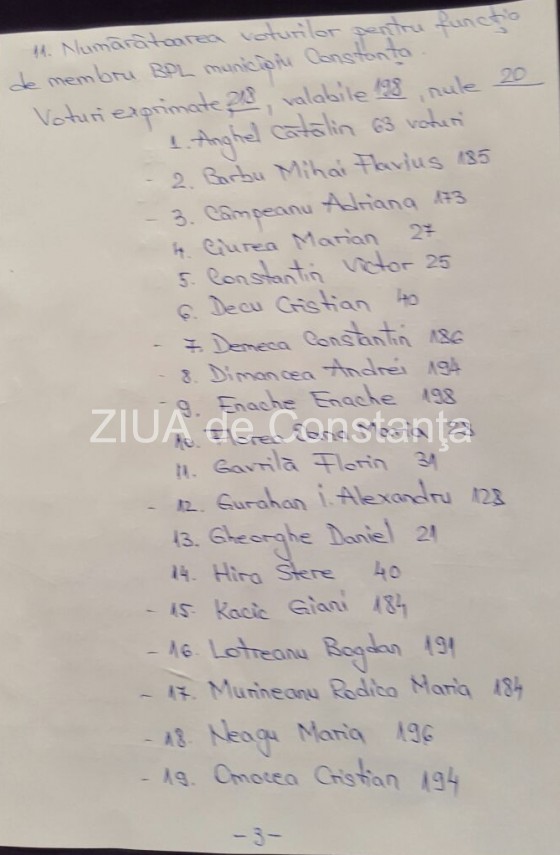 11. Numărătoarea voturilor pentru funcția
de membru BPL municipiu Constanța.
Voturi exprimate 218, valabile 198, nule 20
1. Anghel Cătălin 63 voturi
- 2. Barbu Mihai Flavius 185
- 3. Câmpeanu Adriana 173
4. Ciurea Marian 27
5. Constantin Victor 25
6. Decu Cristian 40
- 7. Demeca Constantin 186
- 8. Dimancea Andrei 194
- 9. Enache Enache 198
ZIUA de Constanţa
10. Florea Maria
11. Gavrilă Florin 31
- 12. Gurahan i. Alexandru 128
13. Gheorghe Daniel 21
14. Hira Stere 40
- 15. Kacic Giani 184
- 16. Lotreanu Bogdan 191
- 17. Murineanu Rodica Maria 184
- 18. Neagu Maria 196
- 19. Omocea Cristian 194
- 3 -